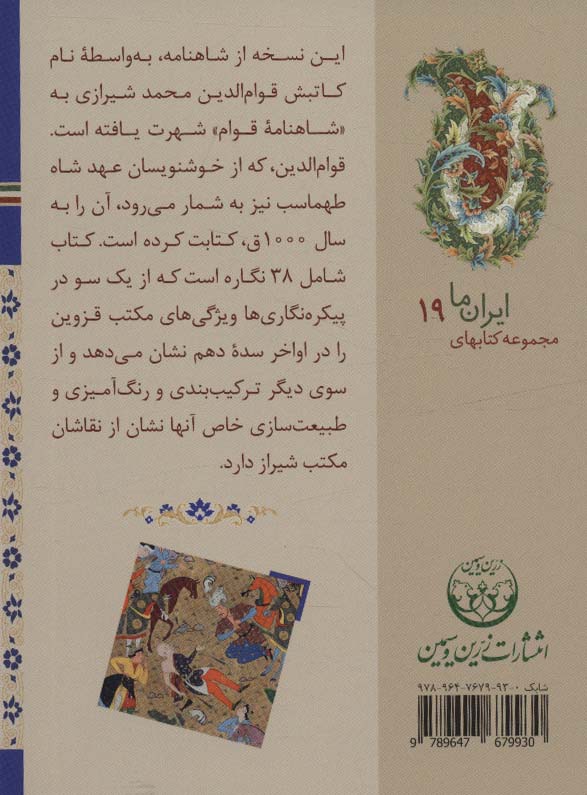 این نسخه از شاهنامه، به‌واسطهٔ نام
کاتبش قوام‌الدین محمد شیرازی به
«شاهنامهٔ قوام» شهرت یافته است.
قوام‌الدین، که از خوشنویسان عهد شاه
طهماسب نیز به شمار می‌رود، آن را به
سال ۱۰۰۰ق، کتابت کرده است. کتاب
شامل ۳۸ نگاره است که از یک سو در
پیکره‌نگاری‌ها ویژگی‌های مکتب قزوین
را در اواخر سدهٔ دهم نشان می‌دهد و از
سوی دیگر ترکیب‌بندی و رنگ‌آمیزی و
طبیعت‌سازی خاص آنها نشان از نقاشان
مکتب شیراز دارد.
ایران ما ۱۹
مجموعه کتابهای
زرین و سیمین
انتشارات زرین و سیمین
شابک ۰-۹۳-۷۶۷۹-۹۶۴-۹۷۸
9 789647 679930